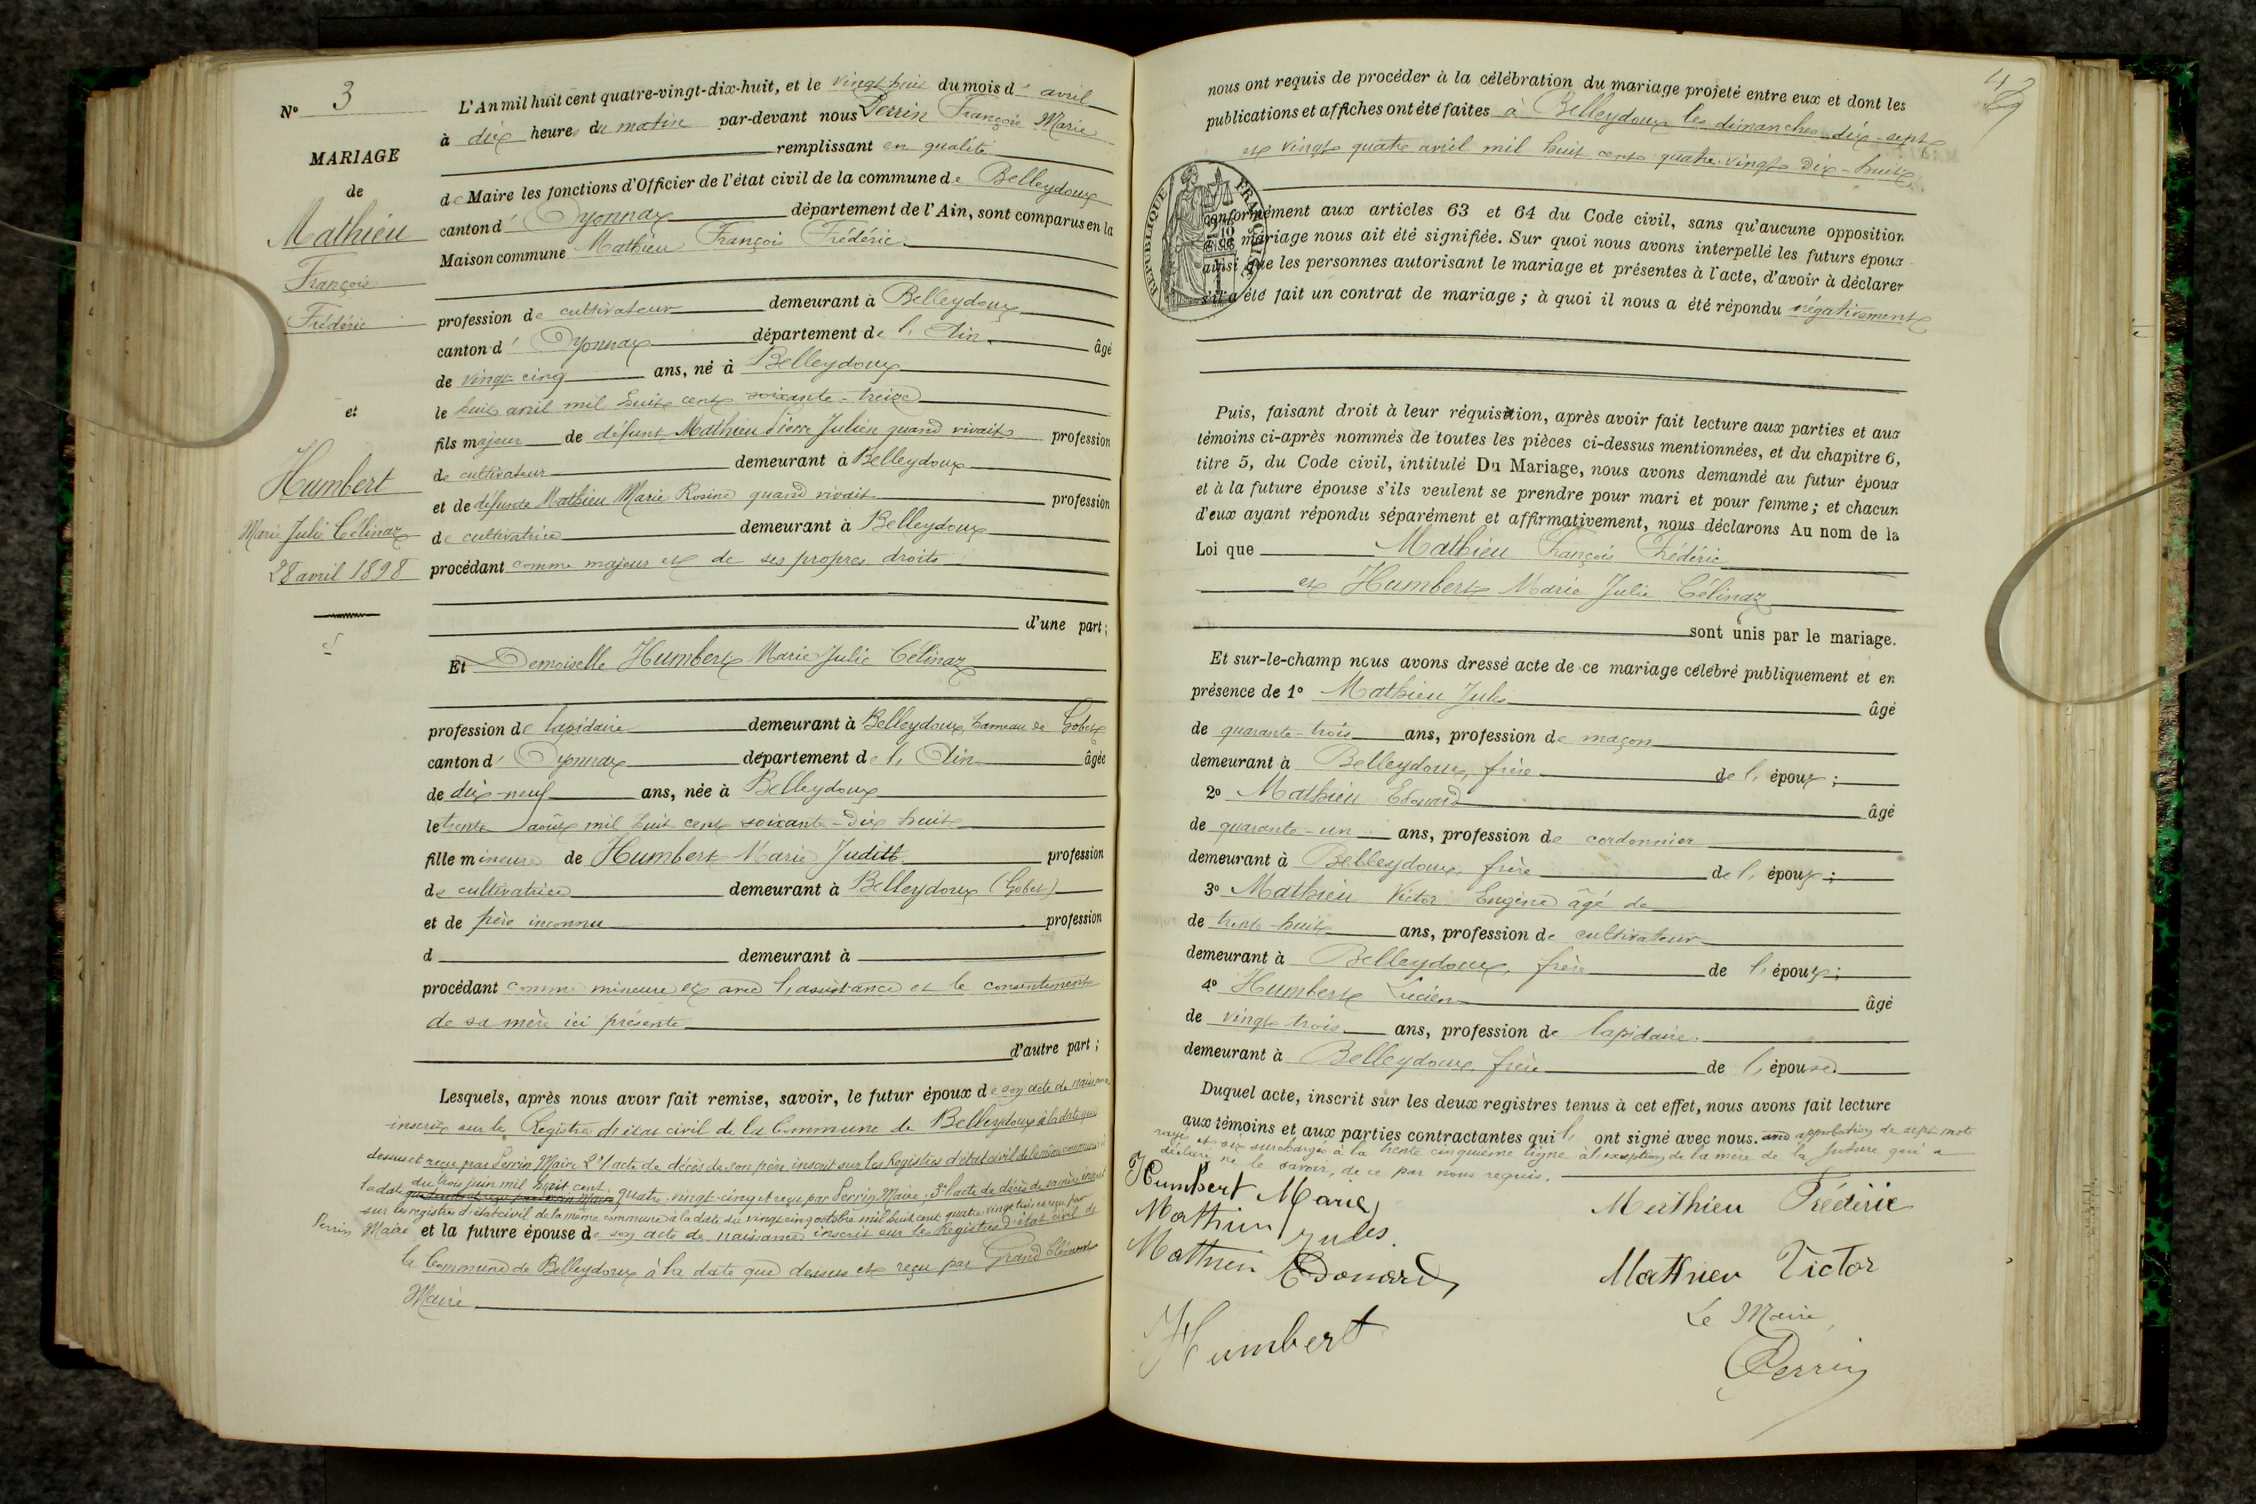 N° 3
MARIAGE
de
Mathieu
François
Frédéric
et
Humbert
Marie Julie Célinaz
28 avril 1898
L'An mil huit cent quatre-vingt-dix-huit, et le vingt huit du mois d' avril
à dix heures du matin par-devant nous Perrin François Marie
remplissant en qualité
de Maire les fonctions d'Officier de l'état civil de la commune de Belleydoux
canton d' Oyonnax département de l'Ain, sont comparus en la
Maison commune Mathieu François Frédéric
profession de cultivateur demeurant à Belleydoux
canton d' Oyonnax département de l'Ain âgé
de vingt-cinq ans, né à Belleydoux
le huit avril mil huit cent soixante-treize
fils majeur de défunt Mathieu Pierre Julien quand vivait profession
de cultivateur demeurant à Belleydoux
et de défunte Mathieu Marie Rosine quand vivait profession
de cultivatrice demeurant à Belleydoux
procédant comme majeur et de ses propres droits
d'une part;
Et Demoiselle Humbert Marie Julie Célinaz
profession de lapidaire demeurant à Belleydoux, hameau de Gobet
canton d' Oyonnax département de l'Ain âgée
de dix-neuf ans, née à Belleydoux
le trente août mil huit cent soixante-dix huit
fille mineure de Humbert Marie Judith profession
de cultivatrice demeurant à Belleydoux (Gobet)
et de père inconnu profession
d demeurant à
procédant comme mineure et avec l'assistance et le consentement
de sa mère ici présente
d'autre part;
Lesquels, après nous avoir fait remise, savoir, le futur époux de son acte de naissance
inscrit sur le Registre d'état civil de la Commune de Belleydoux à la date que
dessus et reçu par Perrin Maire 2° l'acte de décès de son père inscrit sur les Registres d'état civil de la même commune à
la date du trois juin mil huit cent quatre-vingt-cinq et reçu par Perrin Maire; 3° l'acte de décès de sa mère inscrit
sur les registres d'état civil de la même commune à la date du vingt cinq octobre mil huit cent quatre vingt trois et reçu par
Perrin Maire et la future épouse de son acte de naissance inscrit sur les Registres d'état civil de
la Commune de Belleydoux à la date que dessus et reçu par Grand Clément
Maire
43
nous ont requis de procéder à la célébration du mariage projeté entre eux et dont les
publications et affiches ont été faites à Belleydoux les dimanches dix-sept
et vingt quatre avril mil huit cent quatre-vingt dix-huit
RÉPUBLIQUE FRANÇAISE
conformément aux articles 63 et 64 du Code civil, sans qu'aucune opposition
à ce mariage nous ait été signifiée. Sur quoi nous avons interpellé les futurs époux
ainsi que les personnes autorisant le mariage et présentes à l'acte, d'avoir à déclarer
s'il a été fait un contrat de mariage; à quoi il nous a été répondu négativement
Puis, faisant droit à leur réquisition, après avoir fait lecture aux parties et aux
témoins ci-après nommés de toutes les pièces ci-dessus mentionnées, et du chapitre 6,
titre 5, du Code civil, intitulé Du Mariage, nous avons demandé au futur époux
et à la future épouse s'ils veulent se prendre pour mari et pour femme; et chacun
d'eux ayant répondu séparément et affirmativement, nous déclarons Au nom de la
Loi que Mathieu François Frédéric
et Humbert Marie Julie Célinaz
sont unis par le mariage.
Et sur-le-champ nous avons dressé acte de ce mariage célébré publiquement et en
présence de 1° Mathieu Jules âgé
de quarante-trois ans, profession de maçon
demeurant à Belleydoux, frère de l'époux;
2° Mathieu Edouard âgé
de quarante-un ans, profession de cordonnier
demeurant à Belleydoux, frère de l'époux;
3° Mathieu Victor Eugène âgé de
de trente-huit ans, profession de cultivateur
demeurant à Belleydoux, frère de l'époux;
4° Humbert Lucien âgé
de vingt-trois ans, profession de lapidaire
demeurant à Belleydoux, frère de l'épouse.
Duquel acte, inscrit sur les deux registres tenus à cet effet, nous avons fait lecture
aux témoins et aux parties contractantes qui l' ont signé avec nous. avec approbation de sept mots
rayés et six surchargés à la trente cinquième ligne à l'exception de la mère de la future qui a
déclaré ne le savoir, de ce par nous requis.
Humbert Marie Mathieu Frédéric
Mathieu Jules.
Mathieu Edouard Mathieu Victor
Le Maire,
Humbert Perrin